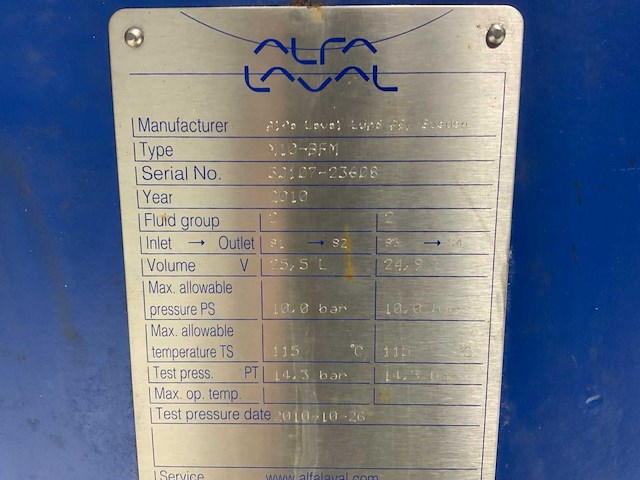 ALFA
LAVAL
Manufacturer Alfa Laval Lund AB, Sweden
Type M10-BFM
Serial No.
Year 2010
Fluid group 2 2
Inlet → Outlet S1 → S2 S3 → S4
Volume V 25,5 L 24,9
Max. allowable
pressure PS 10,0 bar 10,0 bar
Max. allowable
temperature TS 115 °C 115 °C
Test press. PT 14,3 bar 14,3 bar
Max. op. temp.
Test pressure date 2010-10-26
Service www.alfalaval.com